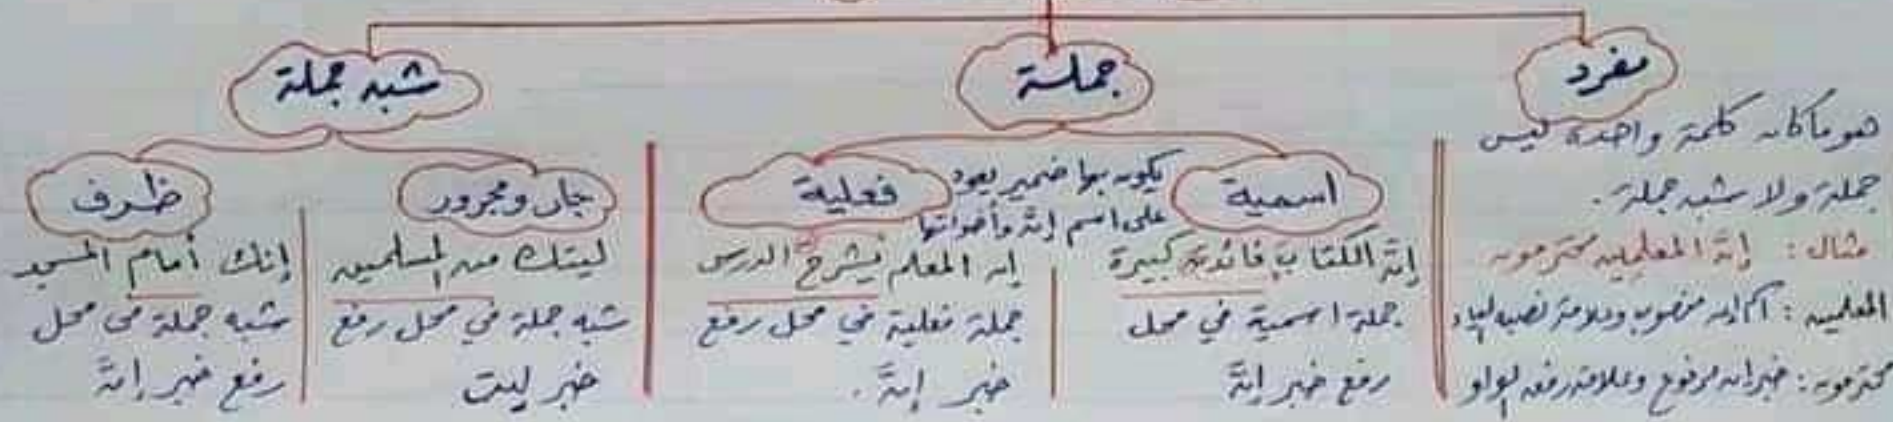 مفرد
هو ما كان كلمة واحدة ليس
جملة ولا شبه جملة .
مثال : إنّ المعلمين محترمون
المعلمين : اسم إن منصوب وعلامة نصبه الياء
محترمون : خبر إن مرفوع وعلامة رفعه الواو
جملة
يكون بها ضمير يعود
على اسم إنّ وأخواتها
اسمية
إنّ الكتاب فائدته كبيرة
جملة اسمية في محل
رفع خبر إنّ
فعلية
إن المعلم يشرح الدرس
جملة فعلية في محل رفع
خبر إنّ .
شبه جملة
جار ومجرور
ليتك من المسلمين
شبه جملة في محل رفع
خبر ليت
ظرف
إنك أمام المسجد
شبه جملة في محل
رفع خبر إنّ